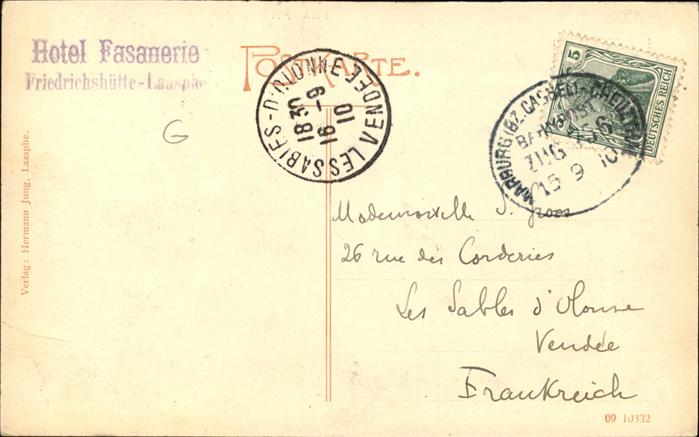 Hotel Fasanerie
Friedrichshütte-Laasphe
POSTKARTE.
LES SABLES-D'OLONNE VENDÉE
18 30
16 -9
10
5
DEUTSCHES REICH
MARBURG (BZ. CASSEL)-CREUZTHAL
BAHNPOST
ZUG 556
15 9 10
G
Verlag: Hermann Jung, Laasphe.
Mademoiselle S.
26 rue des Corderies
Les Sables d'Olonne
Vendée
Frankreich
09 10332